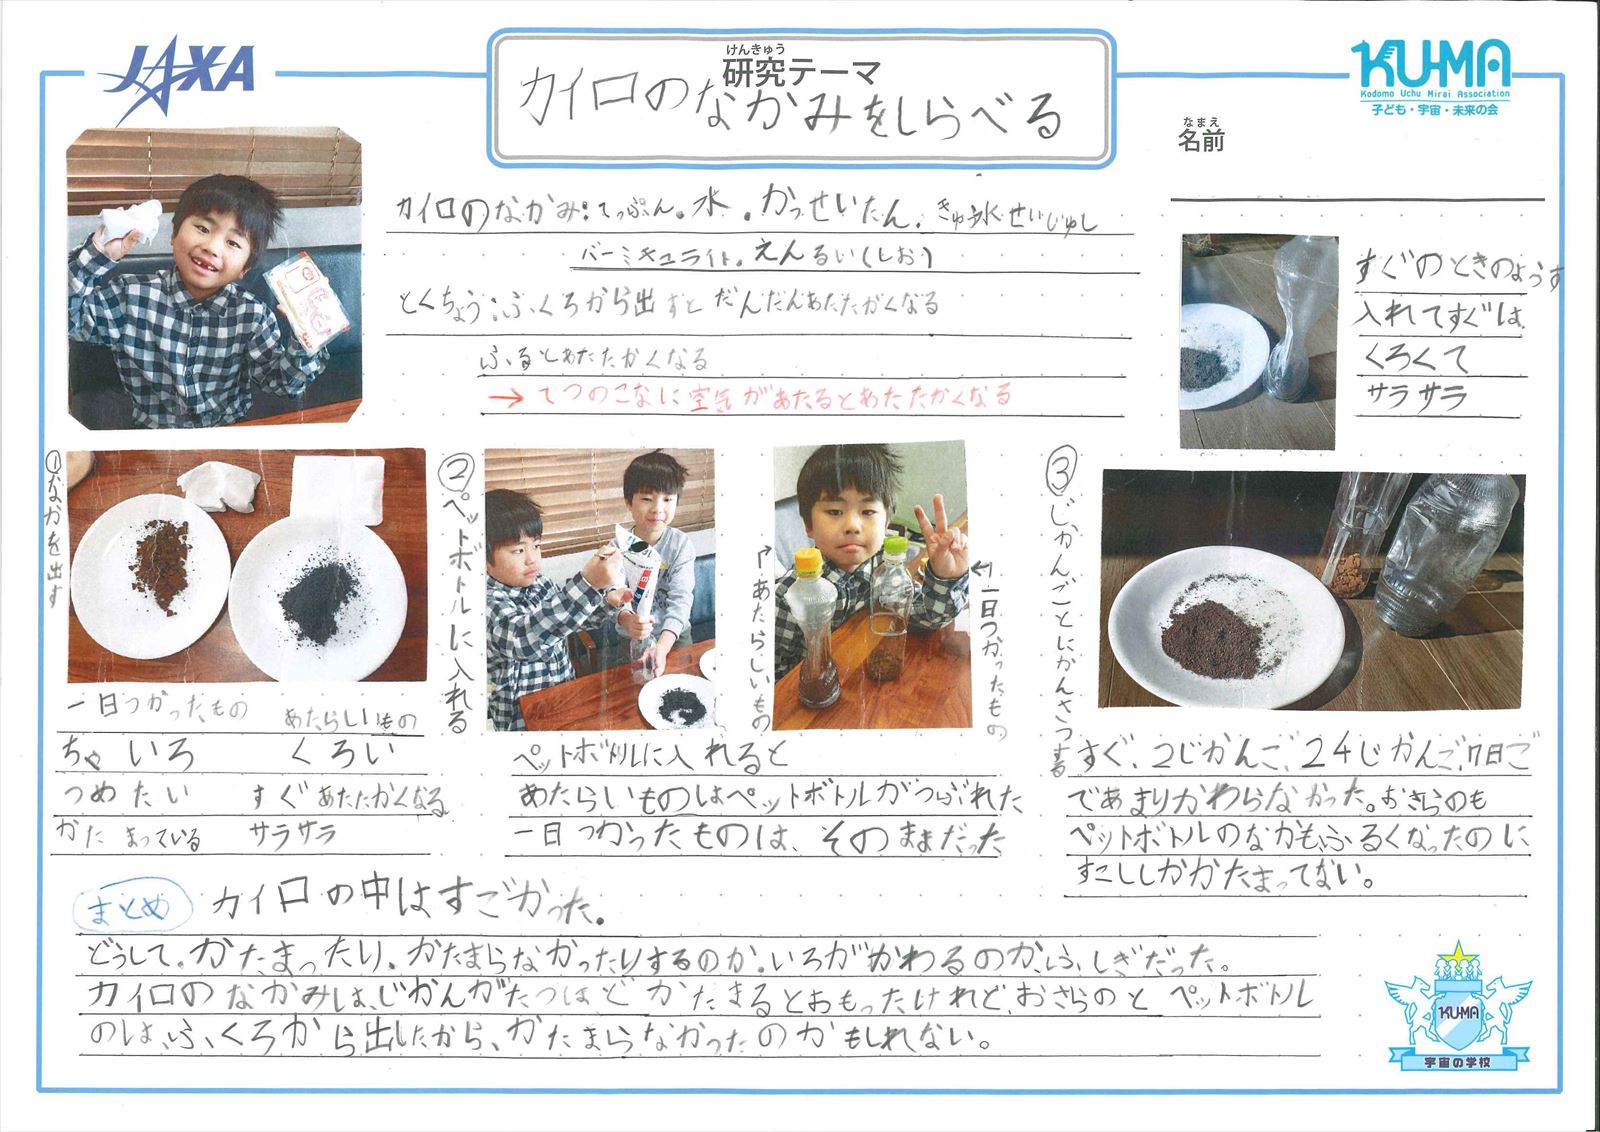 JAXA
けんきゅう
研究テーマ
カイロのなかみをしらべる
KU-MA
Kodomo Uchu Mirai Association
子ども・宇宙・未来の会
なまえ
名前
カイロのなかみ:てっぷん。水.かっせいたん.きゅう水せいじゅし
バーミキュライト。えんるい(しお)
とくちょう:ふくろから出すとだんだんあたたかくなる
ふるとあたたかくなる
→てつのこなに空気があたるとあたたかくなる
すぐのときのようす
入れてすぐは
くろくて
サラサラ
①なかを出す
一日つかったもの あたらしいもの
ちゃいろ くろい
つめたい すぐあたたかくなる
かたまっている サラサラ
②ペットボトルに入れる
あたらしいもの
一日つかったもの
ペットボトルに入れると
あたらいものはペットボトルがつぶれた
一日つかったものは、そのままだった
③じかんごとにかんさつする
すぐ、2じかんご、24じかんご、7日ご
であまりかわらなかった。おさらのも
ペットボトルのなかも、ふるくなったのに
すこししかかたまってない。
まとめ カイロの中はすごかった。
どうして。かたまったり。かたまらなかったりするのか。いろがかわるのか、ふしぎだった。
カイロのなかみは、じかんがたつほどかたまるとおもったけれど、おさらのとペットボトル
のは、ふくろから出したから、かたまらなかったのかもしれない。
KU-MA
宇宙の学校